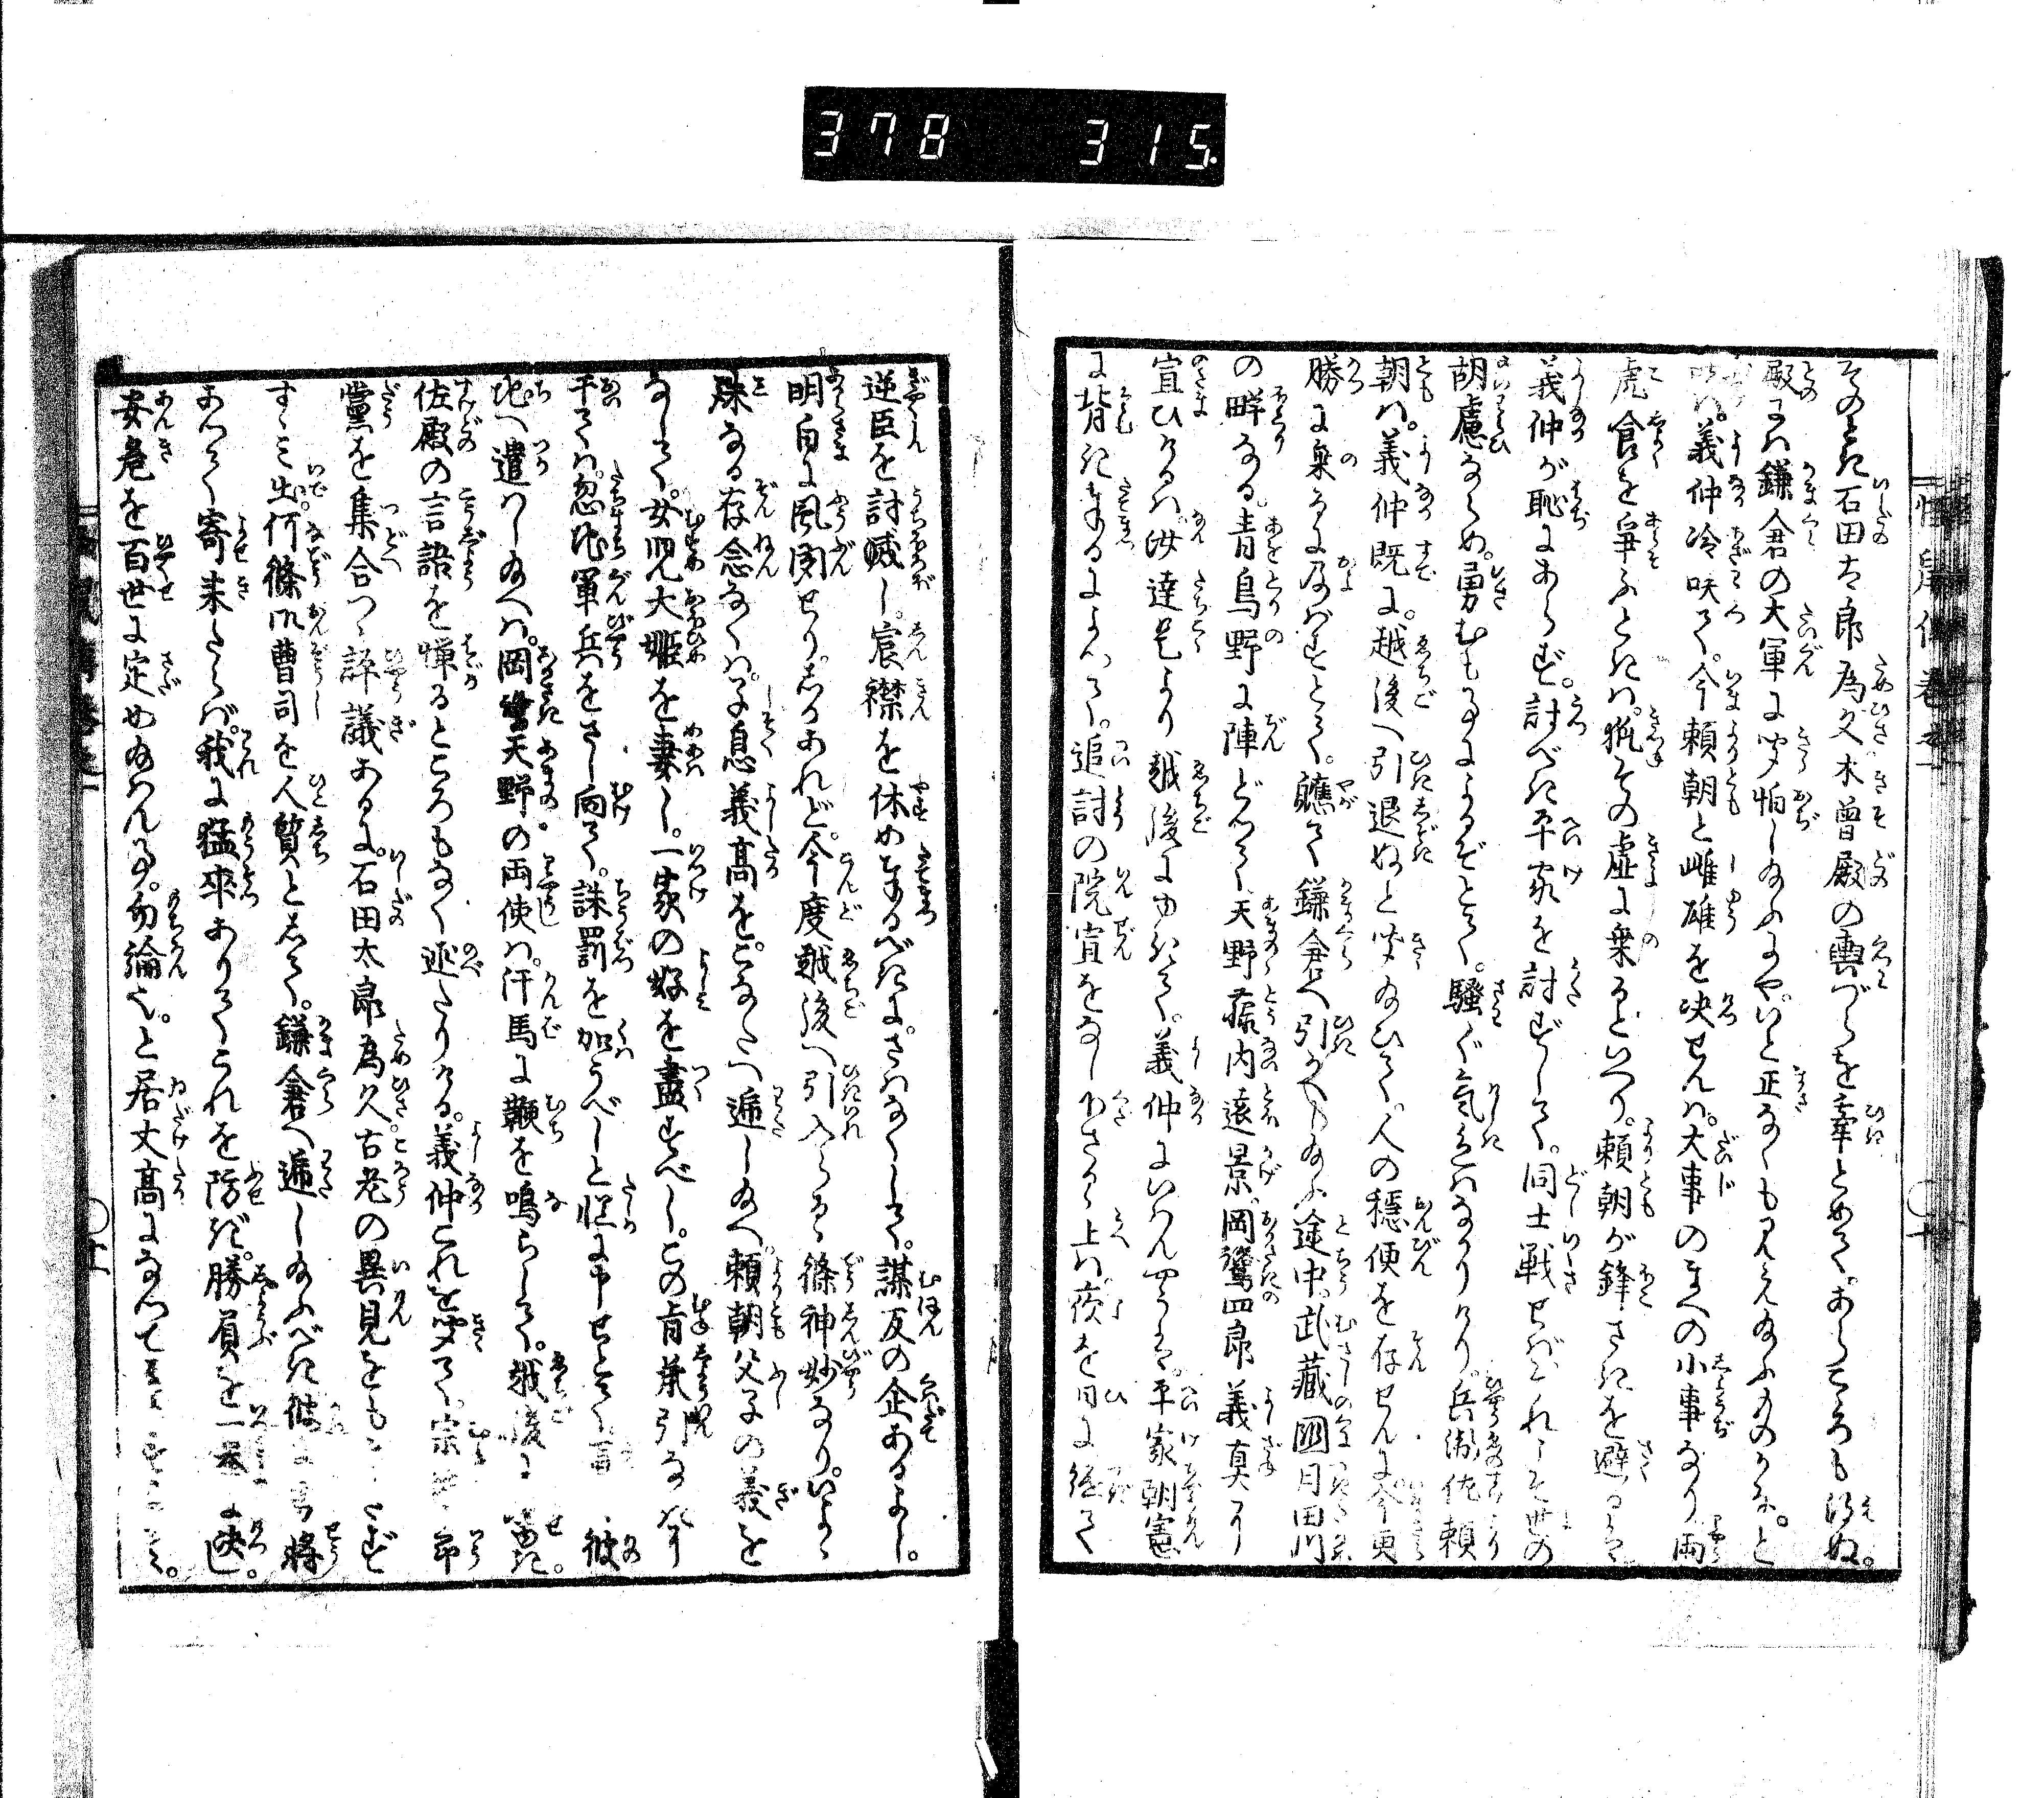 378 315
怪鼠伝巻之一
そのとき石田太郎為久木曽殿の輿づらを牽とめて。あらこゝろも得ぬ。
殿には鎌倉の大軍に聞怕し給ふにや。いと正なくも見え給ふものかな。と
いへば。義仲冷咲て。今頼朝と雌雄を决せんは。大事のまへの小事なり両
虎食を争ふときは。狐その虚に乗るといへり。頼朝が鋒さきを避るとは
義仲が恥にあらず。討べき平家を討ずして。同士戦せばこれこそ世の
胡慮ならめ。勇むも事によるぞとて。騒ぐ気色はなかりけり。兵衛佐頼
朝は。義仲既に。越後へ引退ぬと聞給ひて。人の穏便を存せんに今更
勝に乗るに及ばずとて。軈て鎌倉へ引かへし給ふ途中。武蔵国月田川
の畔なる。青鳥野に陣どつて天野藤内遠景。岡﨑四郎義真より
宣ひけるは。汝達是より越後にゆきて。義仲にいはんやうは。平家朝憲
に背き奉るによつて。追討の院宣をなし下さるゝ上は夜を日に継て
逆臣を討滅し。宸襟を休め奉るべきに。さはなくして。謀反の企あるよし。
明白に風聞せり。しかあれど。今度越後へ引入らるゝ條神妙なり。いよゝ
殊なる存念なくは。子息義高をこなたへ逓し給へ頼朝父子の義を
なして。女児大姫を妻し。一家の好を盡すべし。この旨承引なきに
于ては。忽地軍兵をさし向て。誅罰を加うべしと慥に申せとて 彼
地へ遣はし給へば。岡﨑天野の両使は。汗馬に鞭を鳴らして。越後に 著き。
佐殿の言語を憚るところもなく延たりける。義仲これを聞て。宗 郎
黨を集合つゝ評議あるに。石田太郎為久古老の異見をも ず
すゝみ出。何條御曹司を人質として。鎌倉へ逓し給ふべき彼 将
あつて寄来たらば。我に猛卒ありてこれを防ぎ。勝屓を一 に决し。
安危を百世に定め給はん事。勿論也。と居丈高になつて